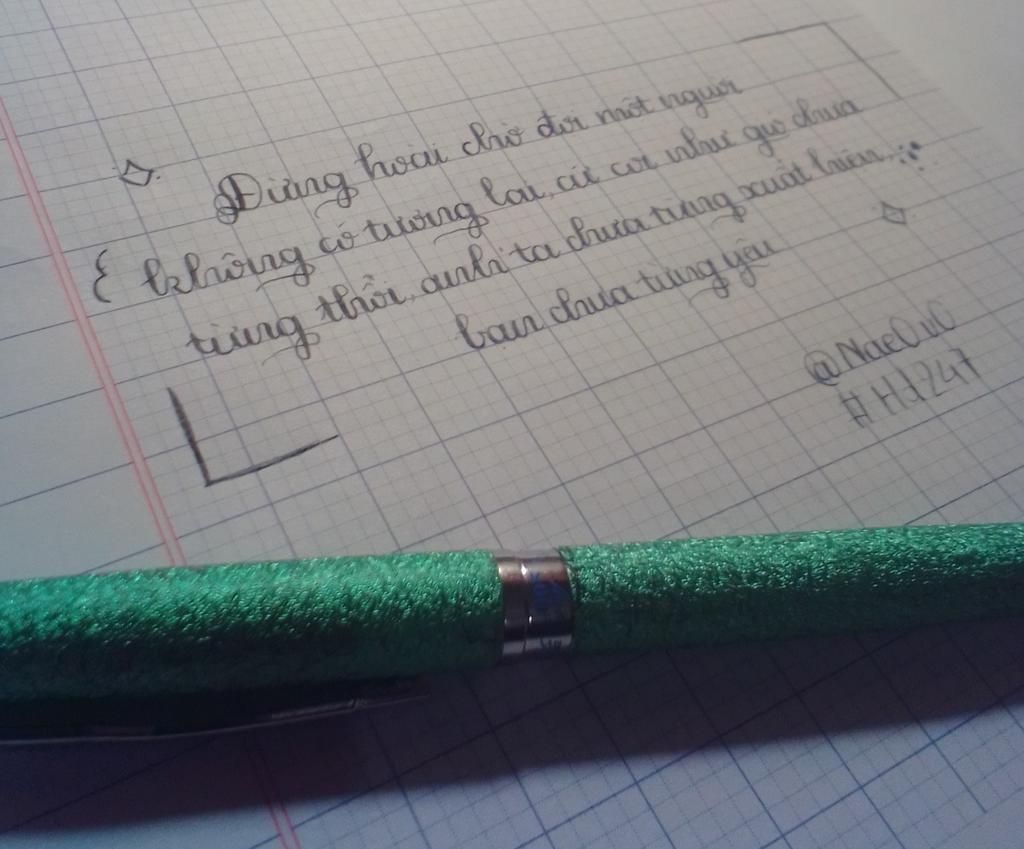 Đừng hoài chờ đợi một người
không có tương lai, cứ coi như gió chưa
từng thổi, anh ta chưa từng xuất hiện,
bạn chưa từng yêu
@NaeOuO
#Hd247